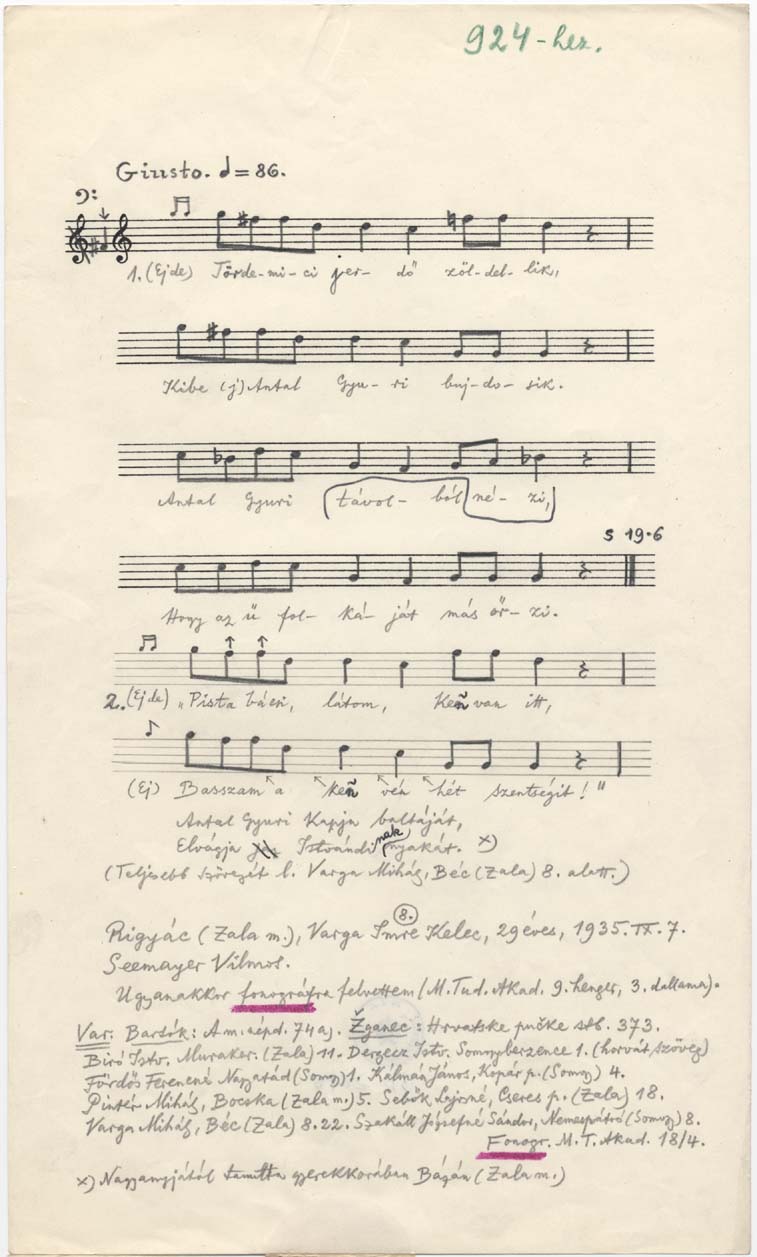 924-hez.
Giusto. ♩= 86.
1. (Ej de) Törde-mi-ci jer-dő zöl-del-lik,
Kibe (j) Antal Gyu-ri buj-do-sik.
Antal Gyuri távol-ból né-zi,
S 19.6
Hogy az ü fol-ká-ját más őr-zi.
2. (Ej de) "Pista bácsi, látom, Keñ van itt,
(Ej) Basszam a keñ vén hét szentségit!"
Antal Gyuri kapja baltáját,
Elvágja Istvándinak nyakát. x)
(Teljesebb szövegét l. Varga Mihály, Béc (Zala) 8. alatt.)
8.
Rigyác (Zala m.), Varga Imre Kelec, 29 éves, 1935. IX. 7.
Seemayer Vilmos.
Ugyanakkor fonográfra felvettem (M. Tud. Akad. 9. henger, 3. dallama).
Var. Bartók: A m. népd. 74 a). Žganec: Hrvatske pučke stb. 373.
Biró Istv. Muraker. (Zala) 11. Dergecz Istv. Somogyberzence 1. (horvát szöveg)
Fürdős Ferencné Nagyatád (Somogy) 1. Kálmán János, Kopár p. (Somogy) 4.
Pintér Mihály, Bocska (Zala m.) 5. Sebők Lajosné, Cseres p. (Zala) 18.
Varga Mihály, Béc (Zala) 8. 22. Szakáll Józsefné Sándor, Nemespátró (Somogy) 8.
Fonogr. M. T. Akad. 18/4.
x) Nagyanyjától tanulta gyerekkorában Bágán (Zala m.)